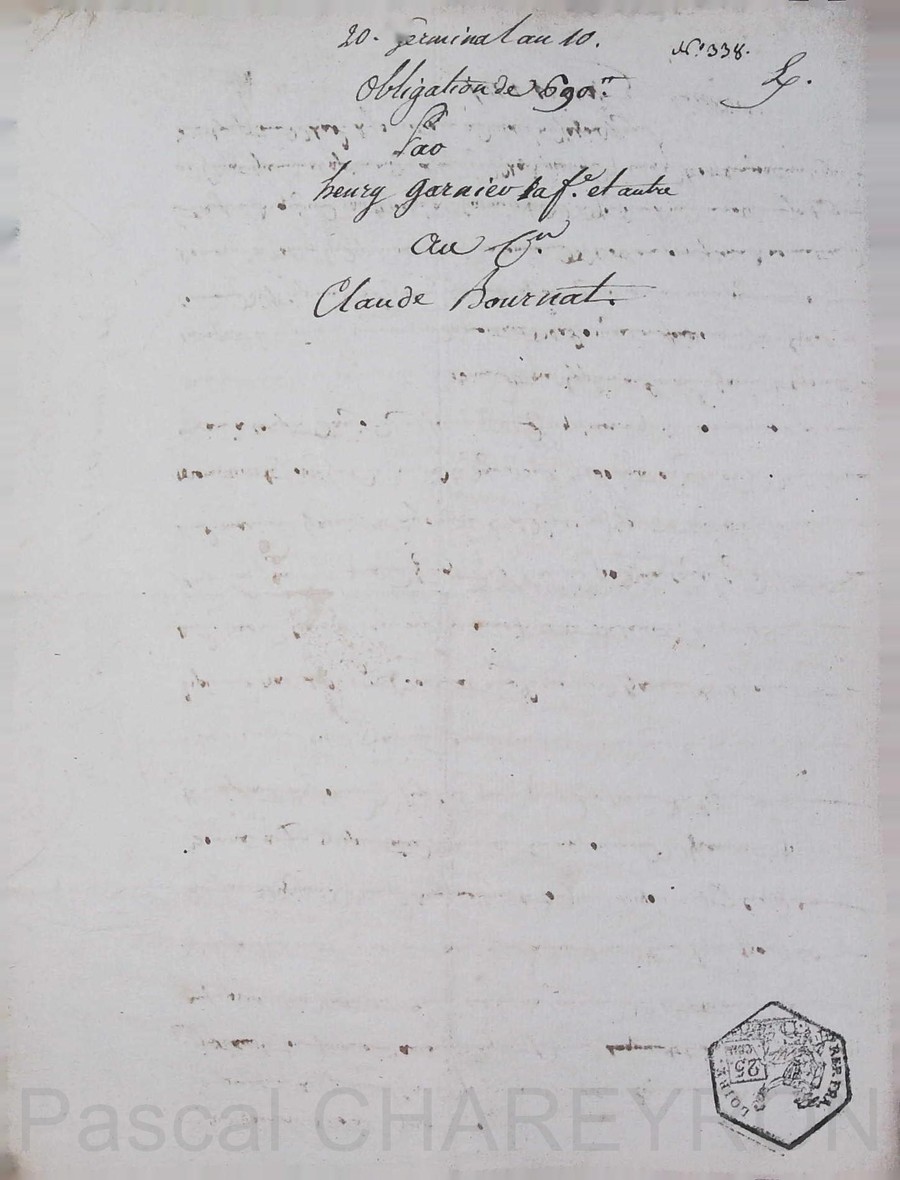 20. Germinal an 10.
N.o 338.
Obligation de 690.tt
Par
henry Garnier sa f.e et autre
au C.en
Claude Bournat.
REP. FRA.
LOIRE
25
CEN
Pascal CHAREYRON